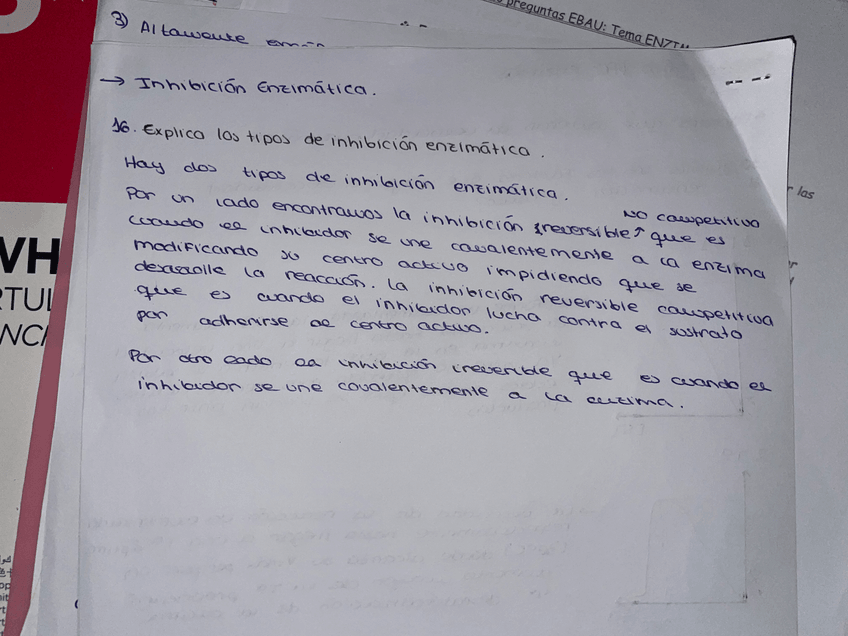 preguntas EBAU: Tema
3) Altamente
→ Inhibición Enzimática.
16. Explica los tipos de inhibición enzimática.
Hay dos tipos de inhibición enzimática.
Por un lado encontramos la inhibición reversible ↑ no competitiva que es
cuando el inhibidor se une covalentemente a la enzima
modificando su centro activo impidiendo que se
desarrolle la reacción. La inhibición reversible competitiva
que es cuando el inhibidor lucha contra el sustrato
por adherirse al centro activo.
Por otro lado la inhibición ireversible que es cuando el
inhibidor se une covalentemente a la enzima.
las
WH